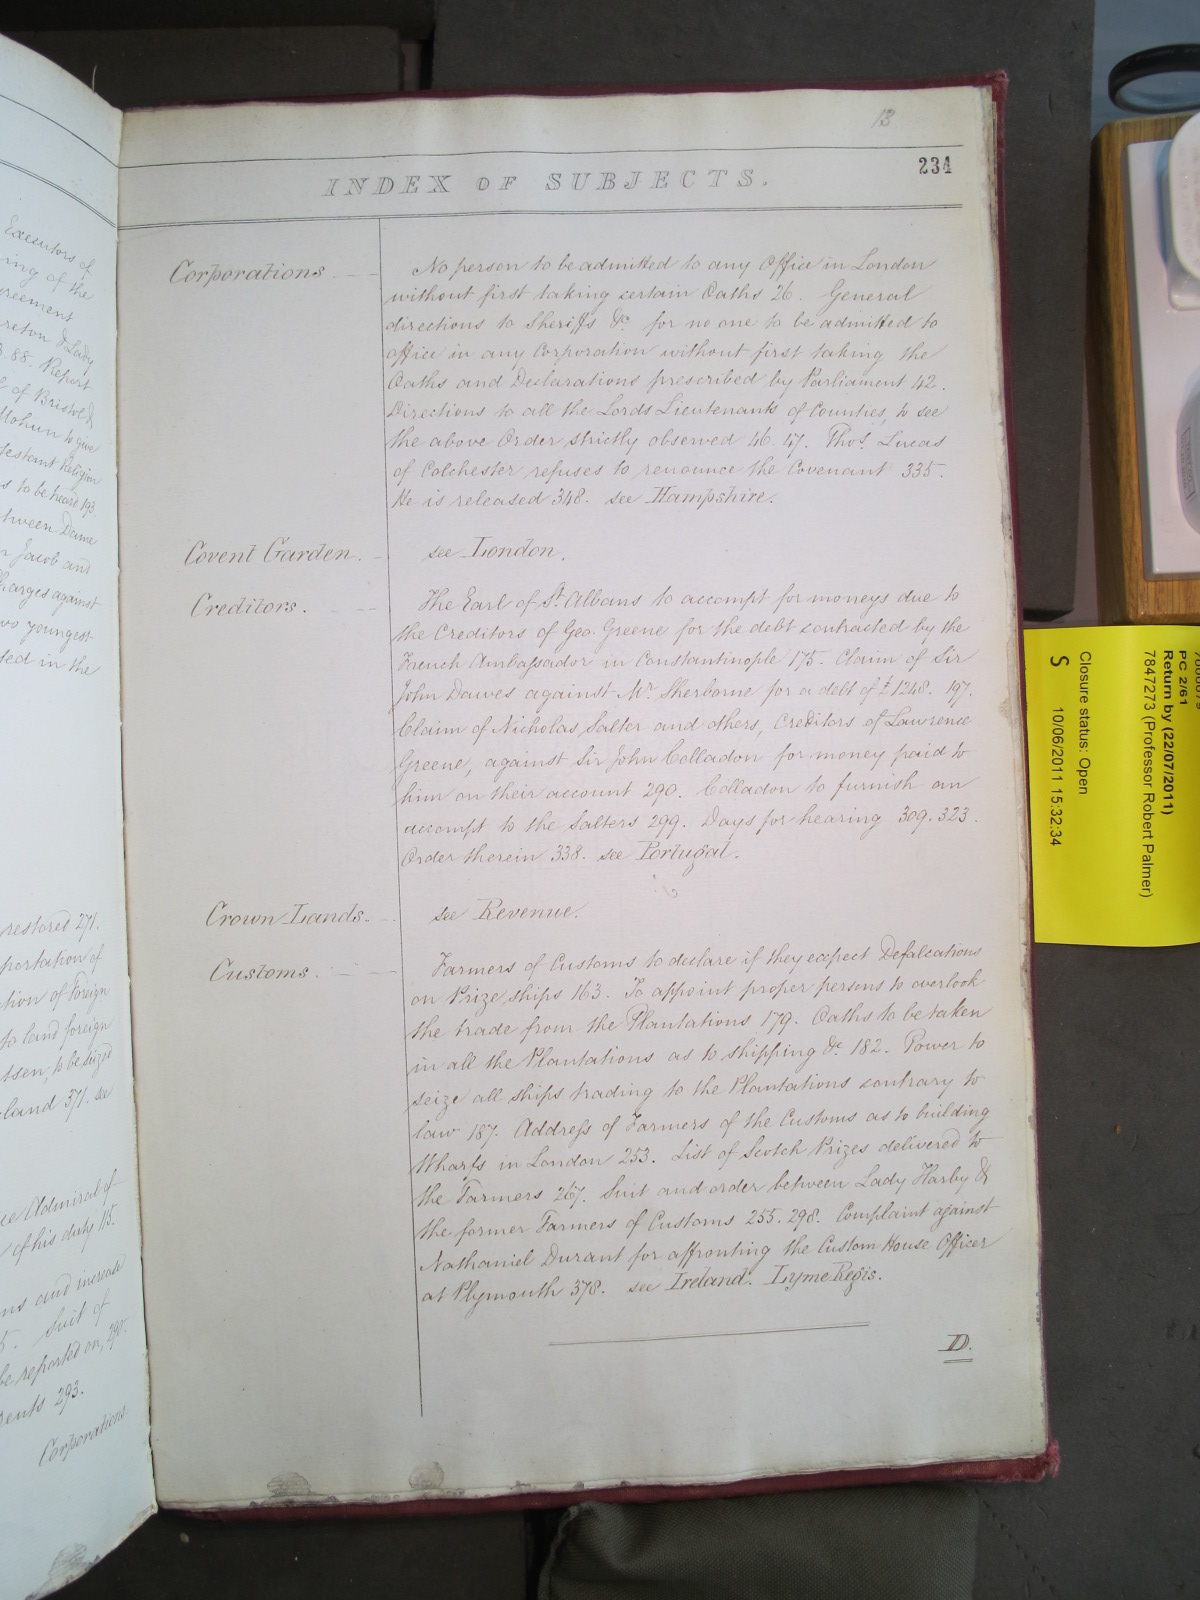 Executors of
ing of the
reement
reton & Lady
88. Report
of Bristol &
Mohun to give
testant Religion
s to be heard 193.
tween Dame
Jacob and
harges against
wo youngest
ted in the
restored 271.
portation of
tion of Foreign
to land foreign
tsen, to be seized
land 371. see
ce Admiral of
of his duty 115.
ns and increase
5. Suit of
be reported on, 290.
rents 293.
Corporations
13
234
INDEX OF SUBJECTS.
Corporations
No person to be admitted to any Office in London
without first taking certain Oaths 26. General
directions to Sheriffs &c for no one to be admitted to
office in any Corporation without first taking the
Oaths and Declarations prescribed by Parliament 42.
Directions to all the Lords Lieutenants of Counties, to see
the above Order strictly observed 46. 47. Thos. Lucas
of Colchester refuses to renounce the Covenant 335.
He is released 348. see Hampshire.
Covent Garden. see London.
Creditors.
The Earl of St. Albans to accompt for moneys due to
the Creditors of Geo. Greene for the debt contracted by the
French Ambassador in Constantinople 175. Claim of Sir
John Dawes against Mr. Sherborne for a debt of £1248. 197.
Claim of Nicholas Salter and others, Creditors of Lawrence
Greene, against Sir John Colladon for money paid to
him on their account 290. Colladon to furnish an
accompt to the Salters 299. Days for hearing 309. 323.
Order therein 338. see Portugal.
Crown Lands. see Revenue.
Customs.
Farmers of Customs to declare if they expect Defalcations
on Prize ships 163. To appoint proper persons to overlook
the trade from the Plantations 179. Oaths to be taken
in all the Plantations as to shipping &c 182. Power to
seize all ships trading to the Plantations contrary to
law 187. Address of Farmers of the Customs as to building
Wharfs in London 253. List of Scotch Prizes delivered to
the Farmers 267. Suit and order between Lady Harby &
the former Farmers of Customs 255. 298. Complaint against
Nathaniel Durant for affronting the Custom House Officer
at Plymouth 378. see Ireland. Lyme Regis.
D.
PC 2/61
Return by (22/07/2011)
7847273 (Professor Robert Palmer)
Closure status: Open
S 10/06/2011 15:32:34